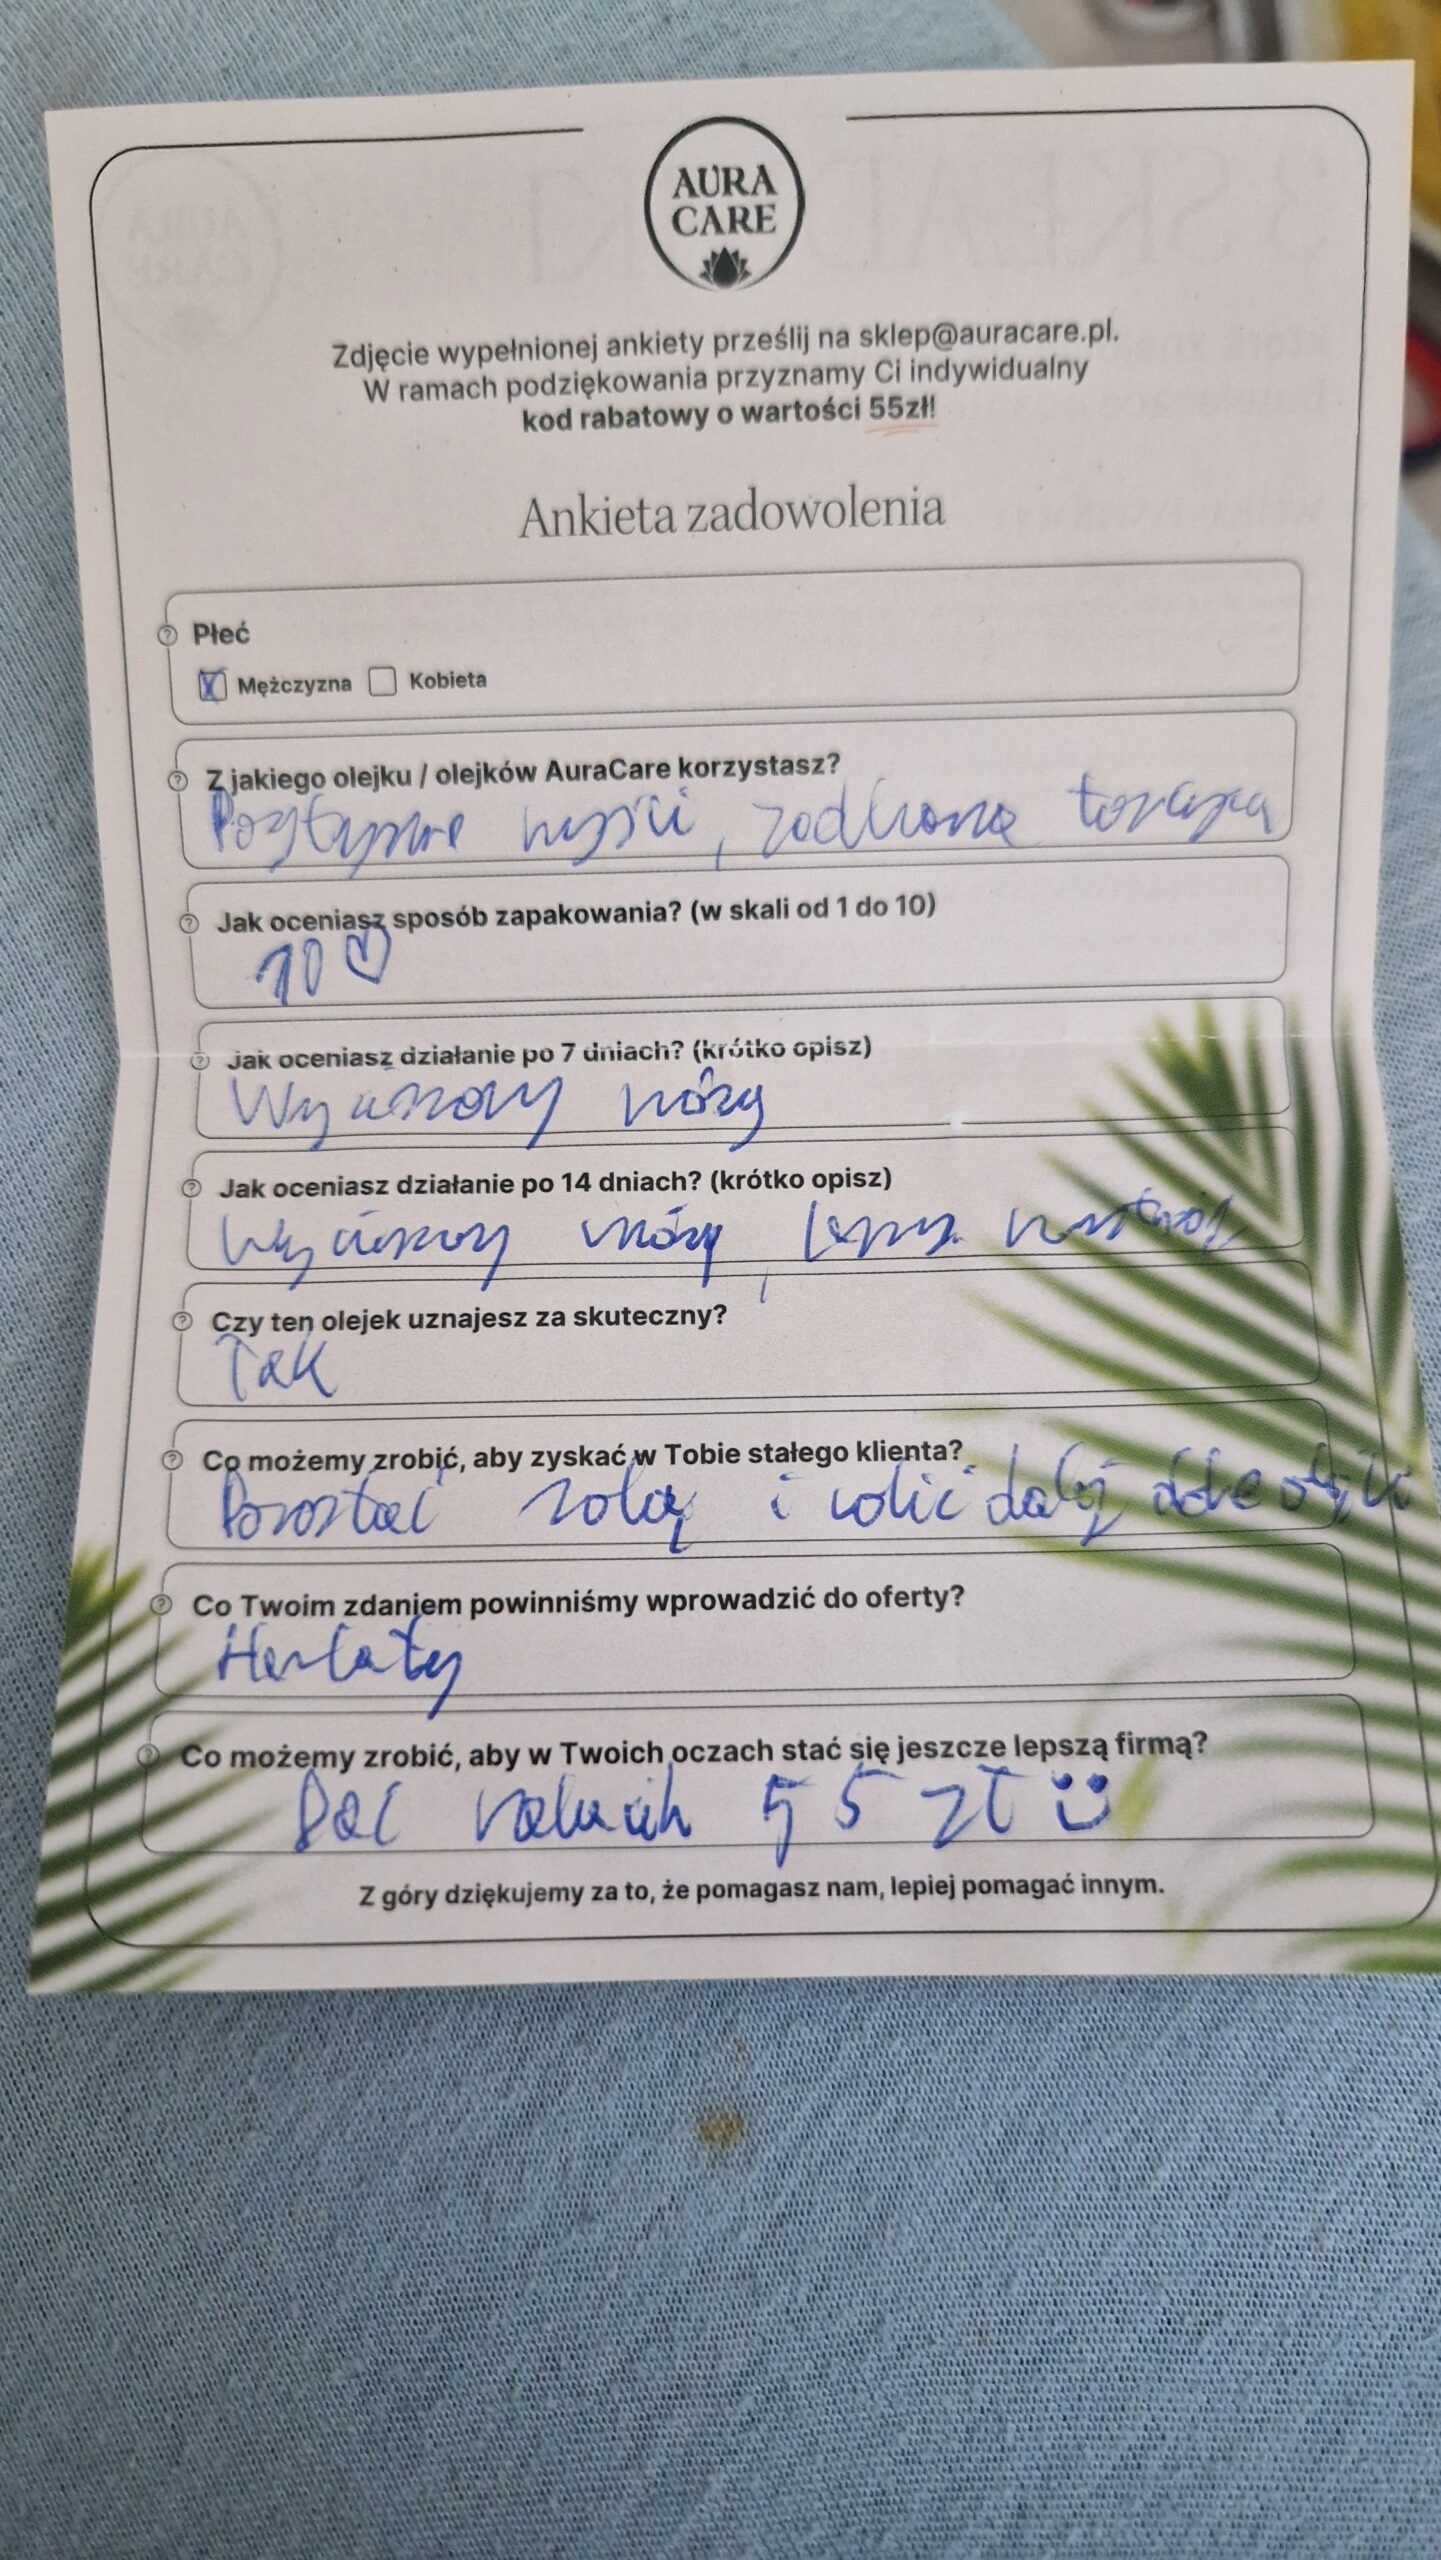 AURA
CARE
Zdjęcie wypełnionej ankiety prześlij na sklep@auracare.pl.
W ramach podziękowania przyznamy Ci indywidualny
kod rabatowy o wartości 55zł!
Ankieta zadowolenia
Płeć
Mężczyzna Kobieta
Z jakiego olejku / olejków AuraCare korzystasz?
Pozytywne myśli,
Jak oceniasz sposób zapakowania? (w skali od 1 do 10)
10 ♡
Jak oceniasz działanie po 7 dniach? (krótko opisz)
Wyciszony mózg
Jak oceniasz działanie po 14 dniach? (krótko opisz)
Wyciszony mózg, lepszy nastrój
Czy ten olejek uznajesz za skuteczny?
Tak
Co możemy zrobić, aby zyskać w Tobie stałego klienta?
Pozostać sobą i robić dalej dobre olejki
Co Twoim zdaniem powinniśmy wprowadzić do oferty?
Herbaty
Co możemy zrobić, aby w Twoich oczach stać się jeszcze lepszą firmą?
Dać 55 zł
Z góry dziękujemy za to, że pomagasz nam, lepiej pomagać innym.